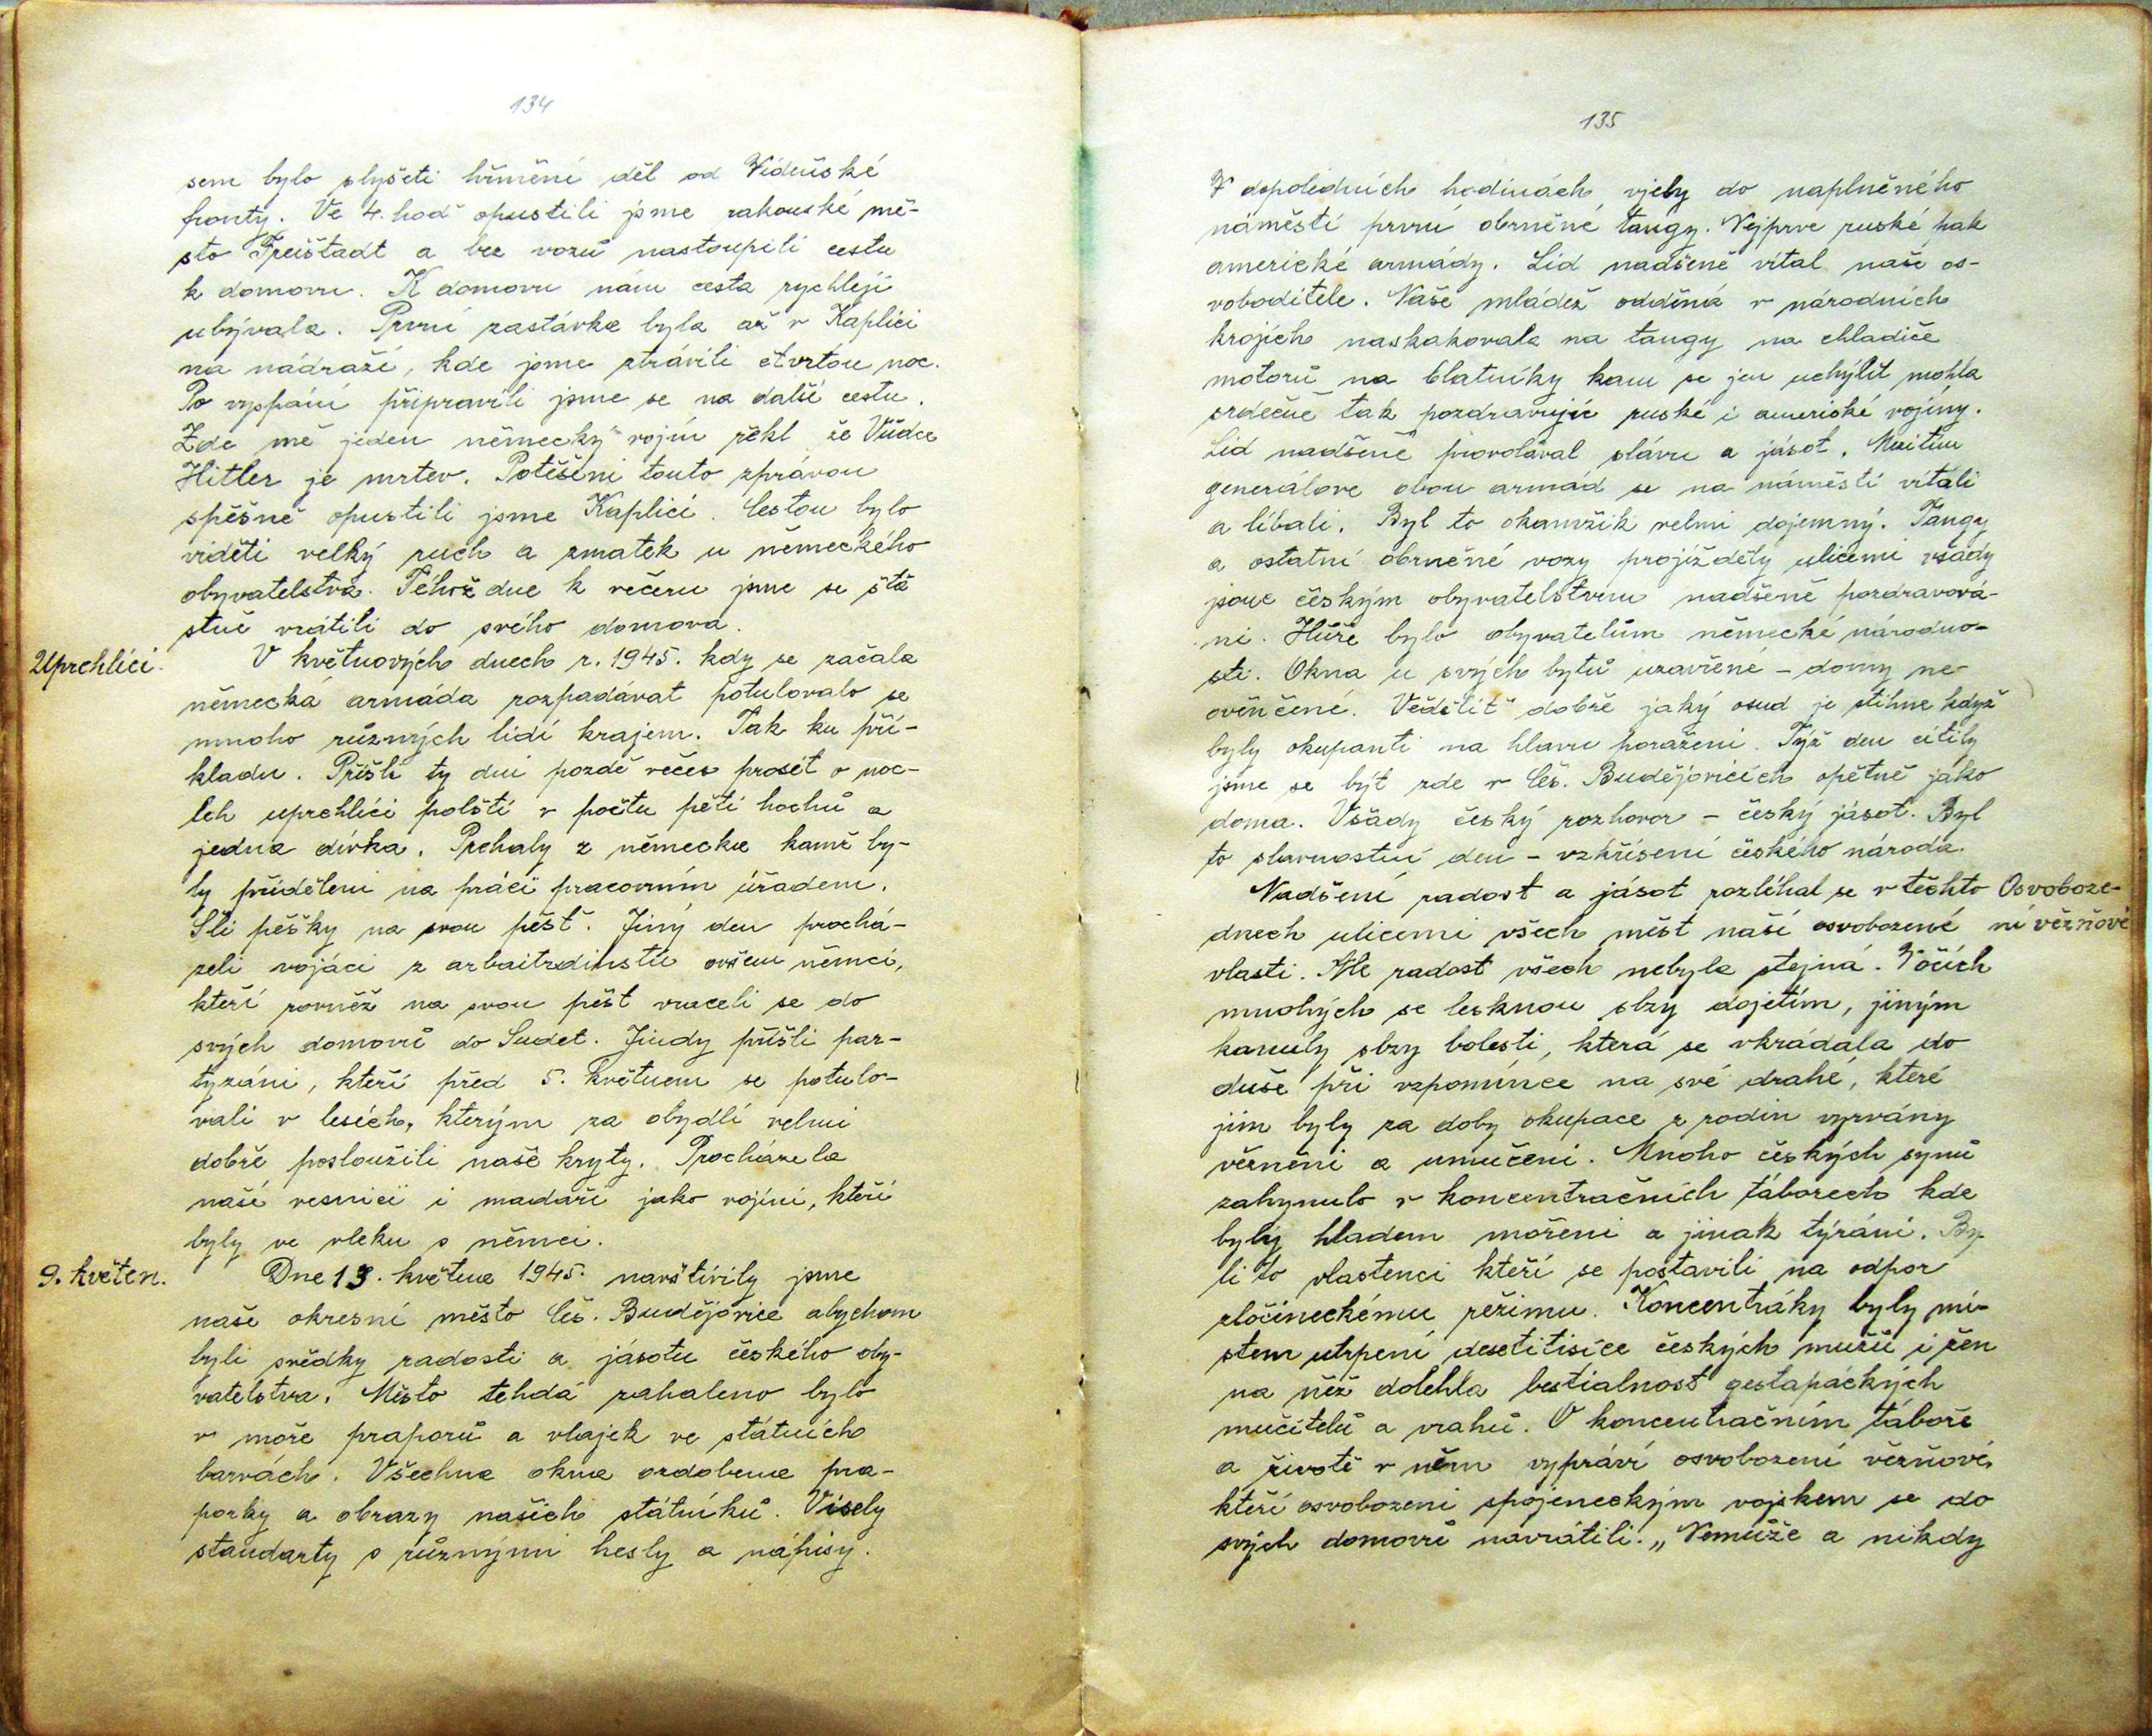 134
sem bylo slyšeti hřmění děl od Vídeňské
fronty. Ve 4. hod opustili jsme rakouské mě-
sto Freištadt a bez vozů nastoupili cestu
k domovu. K domovu nám cesta rychleji
ubývala. První zastávka byla až v Kaplici
na nádraží, kde jsme strávili čtvrtou noc.
Po vyspání připravili jsme se na další cestu.
Zde mě jeden německý vojín řekl že Vůdce
Hitler je mrtev. Potěšeni touto zprávou
spěšně opustili jsme Kaplici. Cestou bylo
viděti velký ruch a zmatek u německého
obyvatelstva. Téhož dne k večeru jsme se šťa
stně vrátili do svého domova.
Uprchlíci.
V květnových dnech r. 1945. kdy se začala
německá armáda rozpadávat potulovalo se
mnoho různých lidí krajem. Tak ku pří-
kladu. Přišli ty dni pozdě večer prosit o noc-
leh uprchlíci polští v počtu pěti hochů a
jedna dívka. Prchaly z německa kamž by-
ly přiděleni na práci pracovním úřadem.
Šli pěšky na svou pěst. Jiný den prochá-
zeli vojáci z arbaitzdinstu ovšem němci,
kteří rovněž na svou pěst vraceli se do
svých domovů do Sudet. Jindy přišli par-
tyzáni, kteří před 5. květnem se potulo-
vali v lesích, kterým za obydlí velmi
dobře posloužili naše kryty. Procházela
naší vesnicí i madaři jako vojíni, kteří
byly ve vleku s němci.
9. květen.
Dne 13. května 1945. navštívily jsme
naše okresní město Čes. Budějovice abychom
byli svědky radosti a jásotu českého oby-
vatelstva. Město tehdá zahaleno bylo
v moře praporů a vlajek ve státních
barvách. Všechna okna ozdobena pra-
porky a obrazy našich státníků. Visely
standarty s různými hesly a nápisy.
135
V dopoledních hodinách vjely do naplněného
náměstí první obrněné tangy. Nejprve ruské pak
americké armády. Lid nadšeně vítal naše os-
voboditele. Naše mládež oděná v národních
krojích naskakovala na tangy na chladiče
motorů na blatníky kam se jen uchýlit mohla
srdečně tak pozdravujíc ruské i americké vojíny.
Lid nadšeně provolával slávu a jásot. Mezitím
generálove obou armád se na náměstí vítáli
a líbali. Byl to okamžik velmi dojemný. Tangy
a ostatní obrněné vozy projížděly ulicemi všady
jsouc českým obyvatelstvem nadšeně pozdravová-
ni. Hůře bylo obyvatelům německé národno-
sti. Okna u svých bytů uzavřené – domy ne-
ověnčené. Věděliť dobře jaký osud je stihne když
byly okupanti na hlavu poraženi. Týž den cítily
jsme se být zde v Čes. Budějovicích opětně jako
doma. Všady český rozhovor – český jásot. Byl
to slavnostní den – vzkříšení českého národa.
Nadšení radost a jásot rozléhal se v těchto
Osvoboze-
ní věznově
dnech ulicemi všech měst naší osvobozené
vlasti. Ale radost všech nebyla stejná. V očích
mnohých se lesknou slzy dojetím, jiným
kanuly slzy bolesti, která se vkrádala do
duše při vzpomínce na své drahé, které
jim byly za doby okupace z rodin vyrvány
vězněni a umučeni. Mnoho českých synů
zahynulo v koncentračních táborech kde
byly hladem mořeni a jinak týráni. By-
li to vlastenci kteří se postavili na odpor
zločineckému režimu. Koncentráky byly mí-
stem utrpení desetitisíce českých mužů i žen
na něž dolehla bestialnost gestapáckých
mučitelů a vrahů. O koncentračním táboře
a životě v něm vypráví osvobození vězňové,
kteří osvobozeni spojeneckým vojskem se do
svých domovů navrátili. „Nemůže a nikdy